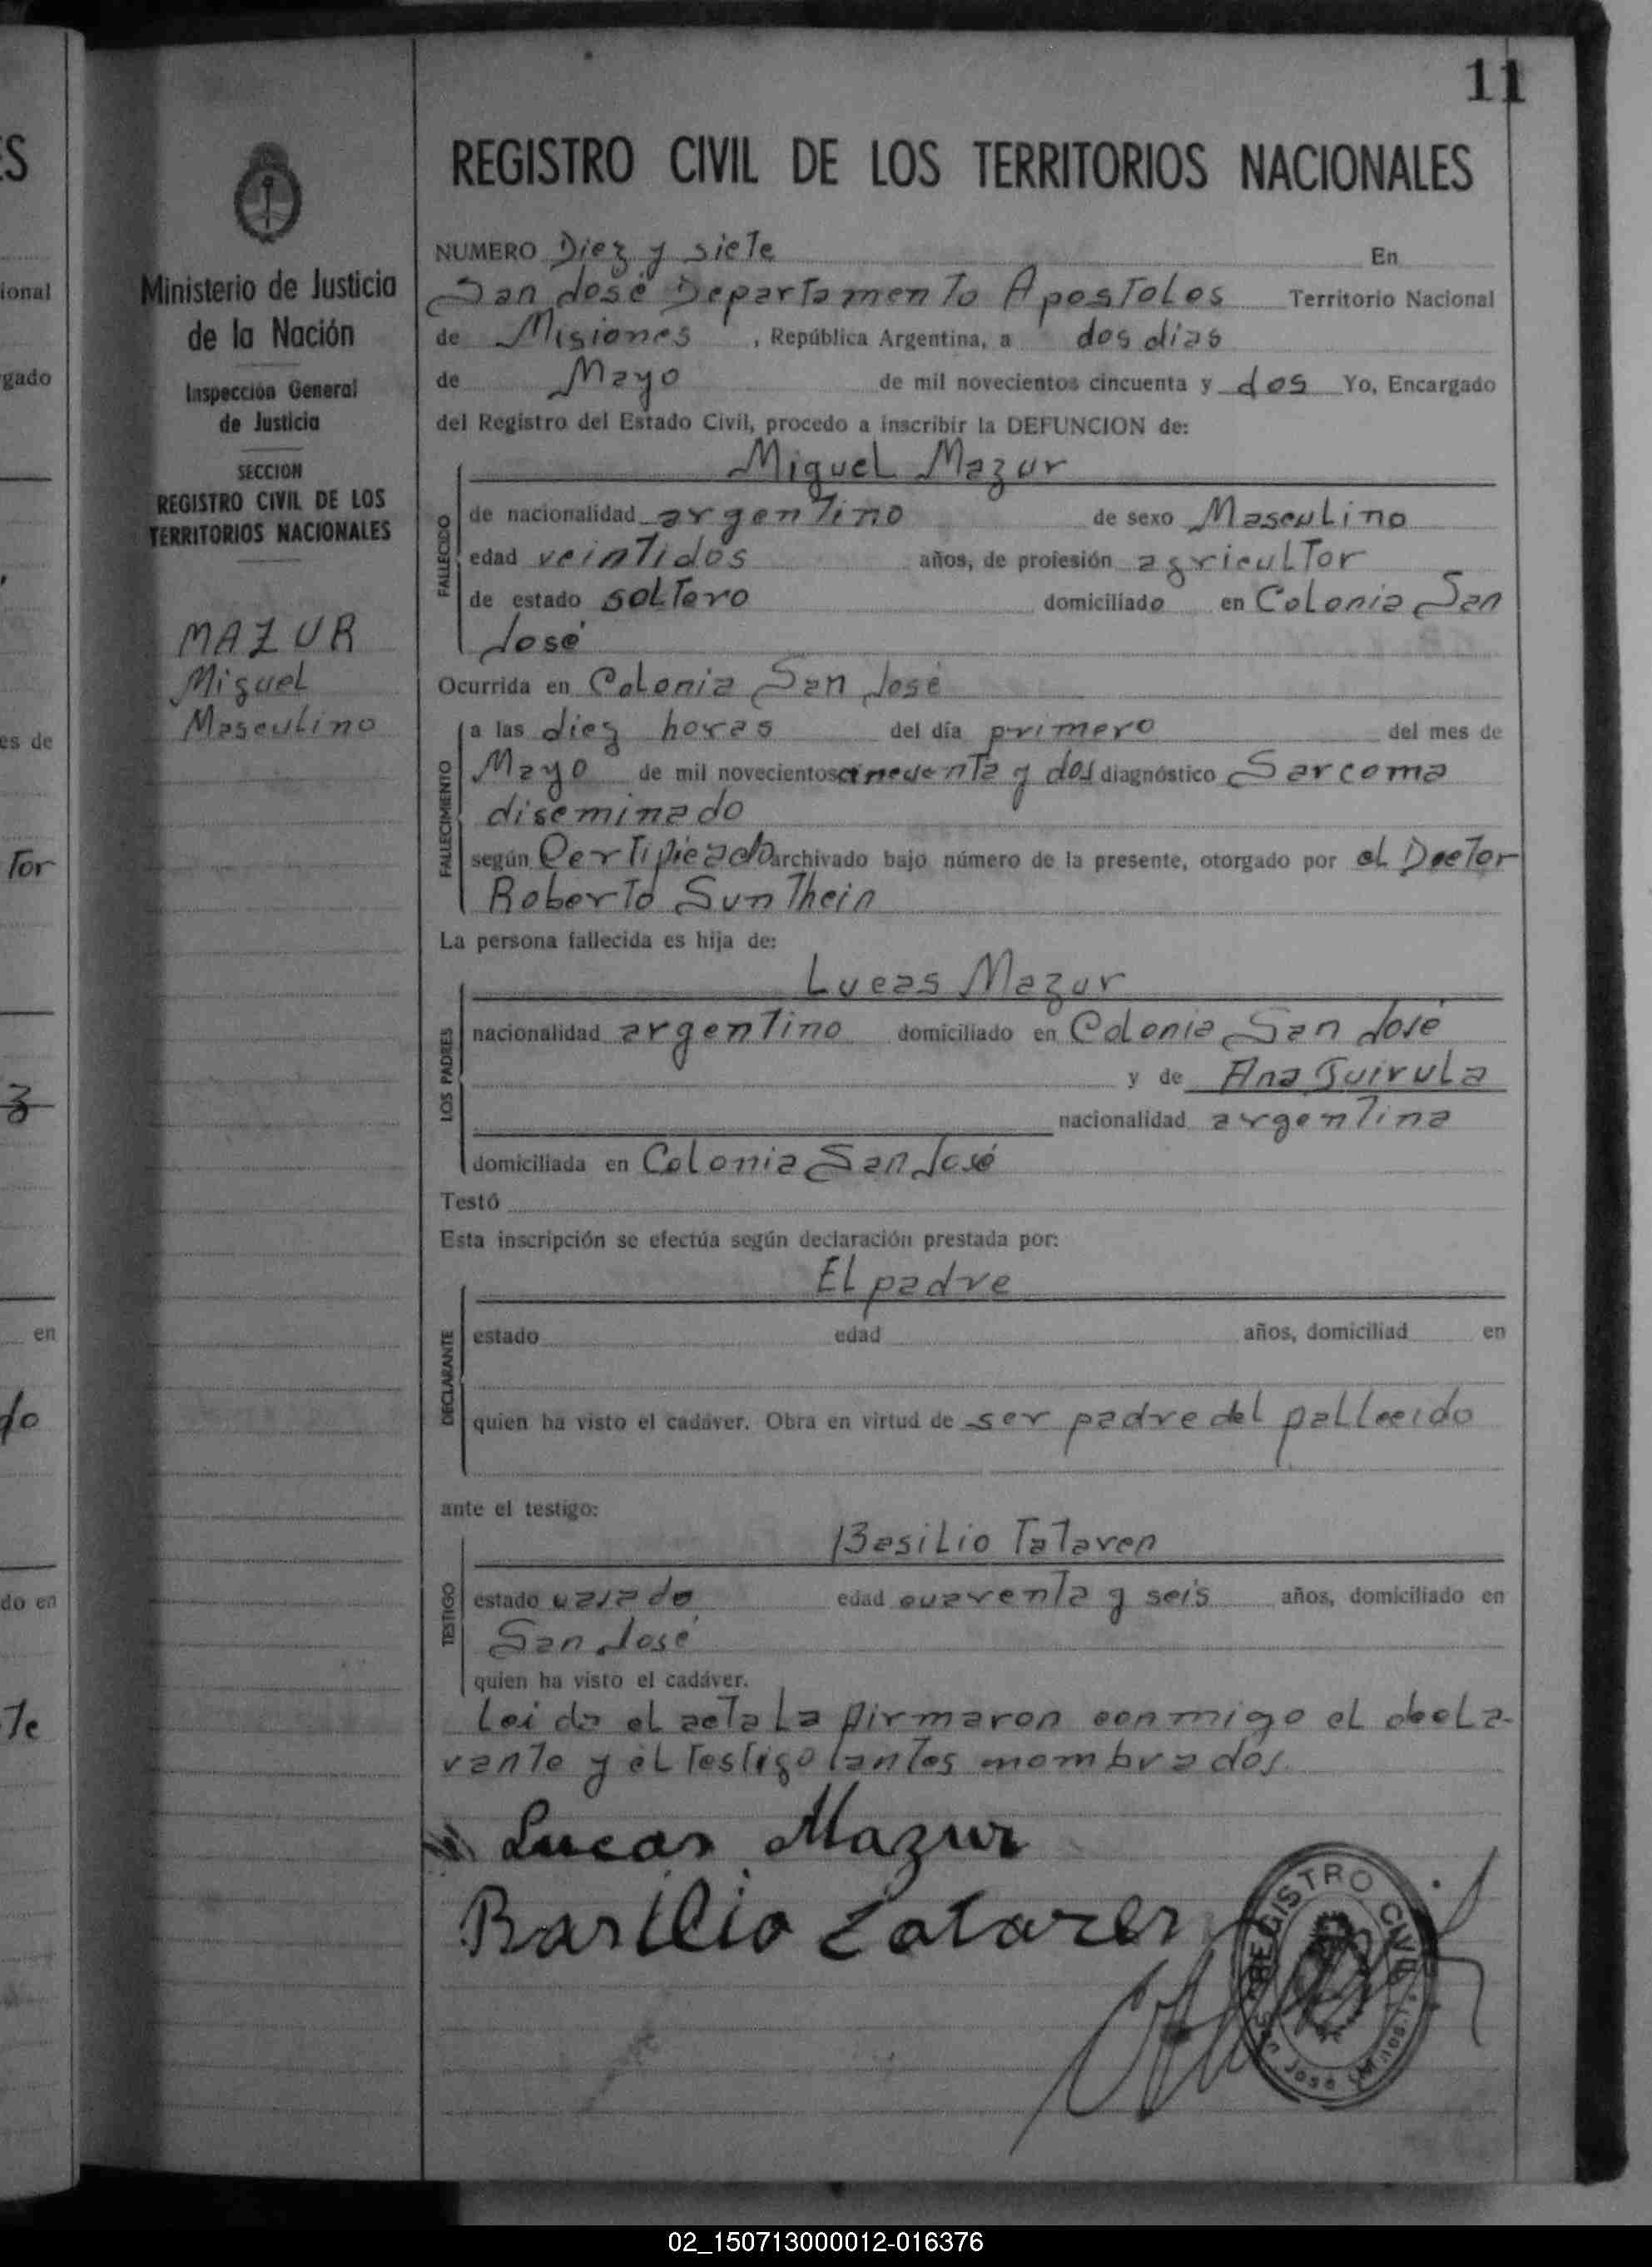 11
REGISTRO CIVIL DE LOS TERRITORIOS NACIONALES
Ministerio de Justicia
de la Nación
Inspección General
de Justicia
SECCION
REGISTRO CIVIL DE LOS
TERRITORIOS NACIONALES
MAZUR
Miguel
Masculino
NUMERO Diez y siete En
San José Departamento Apostoles Territorio Nacional
de Misiones , República Argentina, a dos días
de Mayo de mil novecientos cincuenta y dos Yo, Encargado
del Registro del Estado Civil, procedo a inscribir la DEFUNCION de:
Miguel Mazur
FALLECIDO
de nacionalidad argentino de sexo Masculino
edad veintidos años, de profesión agricultor
de estado soltero domiciliado en Colonia San
José
Ocurrida en Colonia San José
FALLECIMIENTO
a las diez horas del día primero del mes de
Mayo de mil novecientos cincuenta y dos diagnóstico Sarcoma
diseminado
según Certificado archivado bajo número de la presente, otorgado por el Doctor
Roberto Sunthein
La persona fallecida es hija de:
Lucas Mazur
LOS PADRES
nacionalidad argentino domiciliado en Colonia San José
y de Ana Guirula
nacionalidad argentina
domiciliada en Colonia San José
Testó
Esta inscripción se efectúa según declaración prestada por:
El padre
DECLARANTE
estado edad años, domiciliad en
quien ha visto el cadáver. Obra en virtud de ser padre del fallecido
ante el testigo:
Basilio Tataren
TESTIGO
estado casado edad cuarenta y seis años, domiciliado en
San José
quien ha visto el cadáver.
Leida el acta La firmaron conmigo el decla-
rante y el testigo antes nombrados.
Lucas Mazur
Basilio
REGISTRO CIVIL
SAN JOSE
02_150713000012-016376